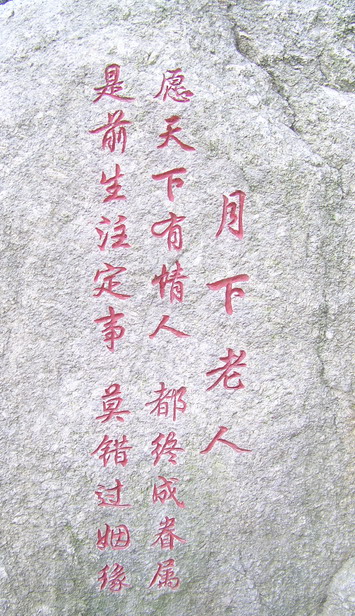 月下老人
愿天下有情人 都终成眷属
是前生注定事 莫错过姻缘